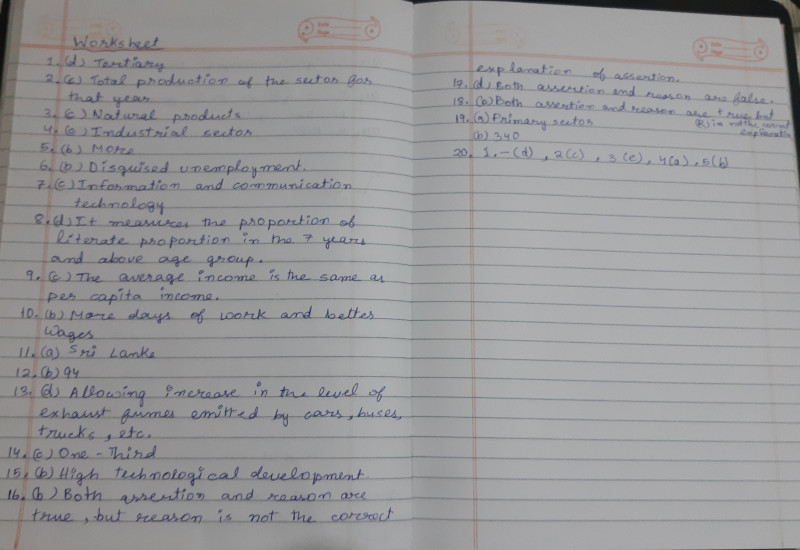 Worksheet
1. (d) Tertiary
2. (c) Total production of the sector for
that year
3. (c) Natural products
4. (c) Industrial sector
5. (b) More
6. (b) Disguised unemployment.
7. (c) Information and communication
technology
8. (d) It measures the proportion of
literate proportion in the 7 years
and above age group.
9. (c) The average income is the same as
per capita income.
10. (b) More days of work and better
Wages
11. (a) Sri Lanka
12. (b) 94
13. (d) Allowing increase in the level of
exhaust fumes emitted by cars, buses,
trucks, etc.
14. (c) One - Third
15. (b) High technological development
16. (b) Both assertion and reason are
true, but reason is not the correct
explanation of assertion.
17. (d) Both assertion and reason are false.
18. (b) Both assertion and reason are true but
(R) is not the correct
explanation
19. (a) Primary sector
(b) 340
20. 1. - (d), 2 (c), 3 (e), 4 (a), 5 (b)